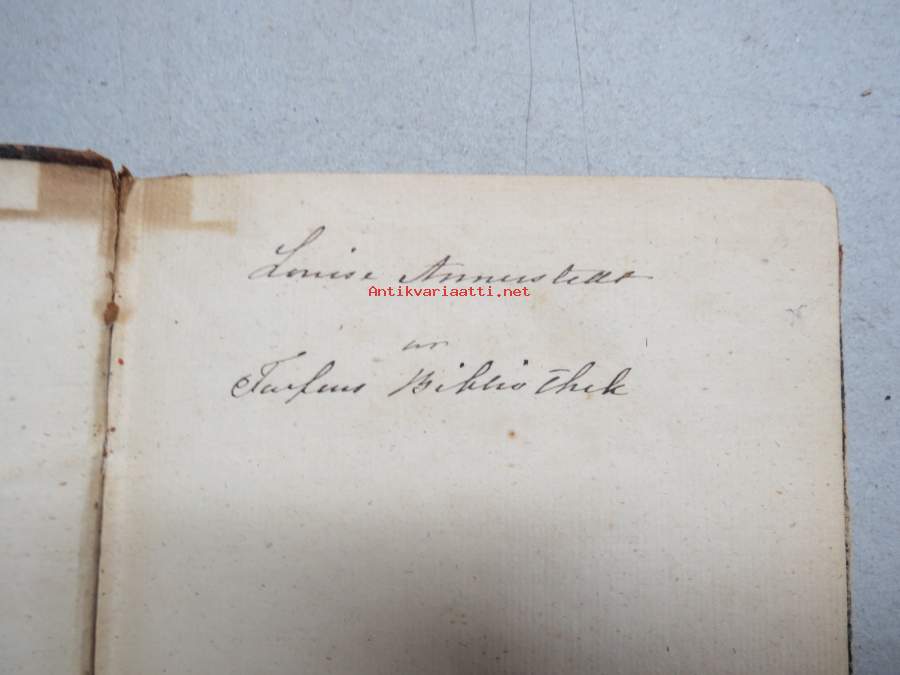 Louise Annerstedt
Antikvariaatti.net
ur
Farfars Bibliothek